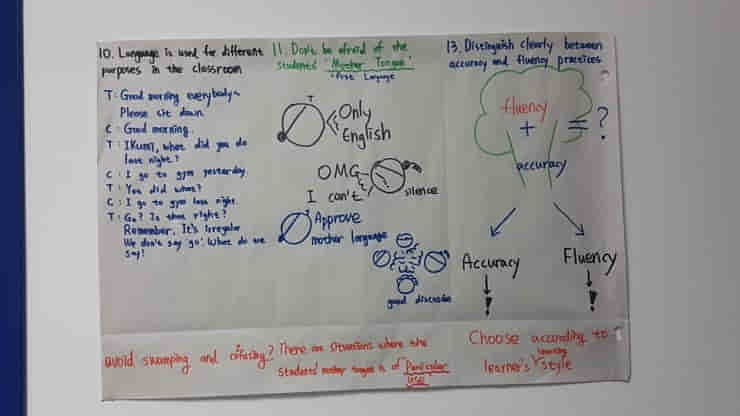 10. Language is used for different
purposes in the classroom
T: Good morning everybody~
Please sit down
C: Good morning.
T: Ikumi, what did you do
last night?
C: I go to gym yesterday.
T: You did what?
C: I go to gym last night.
T: Go? Is that right?
Remember, It's irregular
We don't say 'go'. What do we
say?
11. Don't be afraid of the
students' "Mother Tongue"
"First Language
T
Only
English
OMG
I can't
silence
T
Approve
mother language
good discussion
13. Distinguish clearly between
accuracy and fluency practices
fluency
+
accuracy
= ?
Accuracy
Fluency
!
!
avoid swamping and confusing?
There are situations where the
students mother tongue is of "Particular
use"
Choose according to
learner's learning style